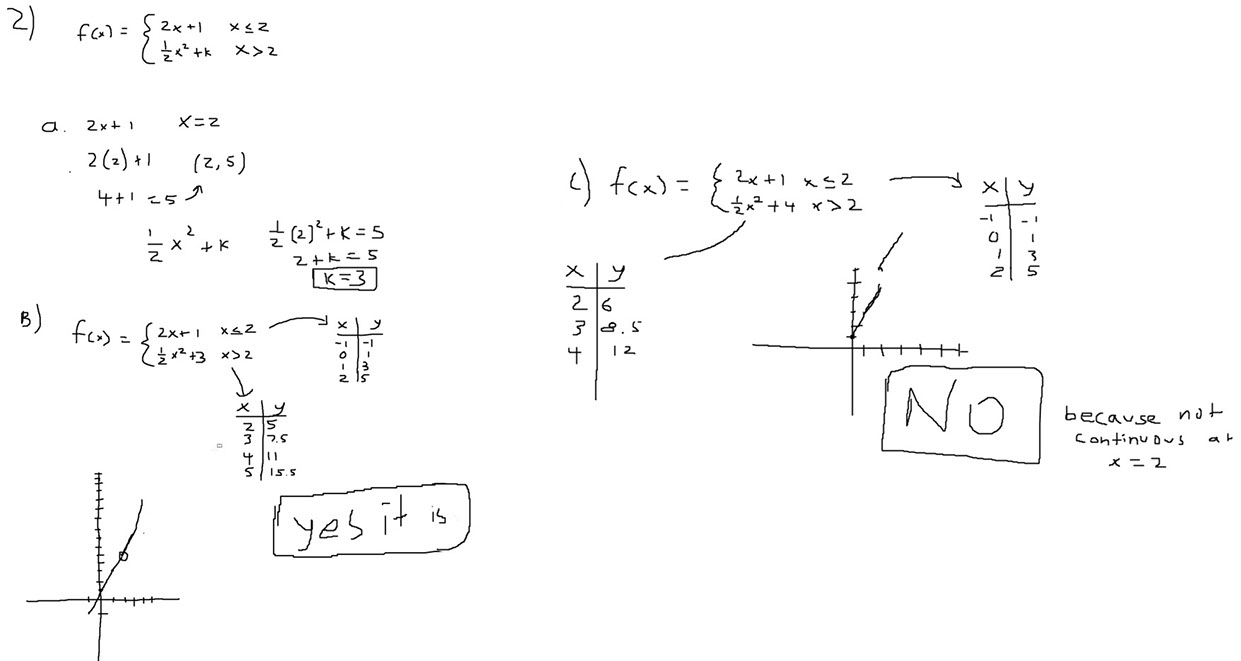 2)
f(x) = { 2x+1 x≤2
½x²+k x>2
a. 2x+1 x=2
2(2)+1 (2,5)
4+1 =5
½x²+k ½(2)²+k=5
2+k=5
k=3
B) f(x) = { 2x+1 x≤2
½x²+3 x>2
x | y
-1 | -1
0 | 1
1 | 3
2 | 5
x | y
2 | 5
3 | 7.5
4 | 11
5 | 15.5
yes it is
c) f(x) = { 2x+1 x≤2
½x²+4 x>2
x | y
-1 | -1
0 | 1
1 | 3
2 | 5
x | y
2 | 6
3 | 8.5
4 | 12
NO
because not
continuous at
x=2